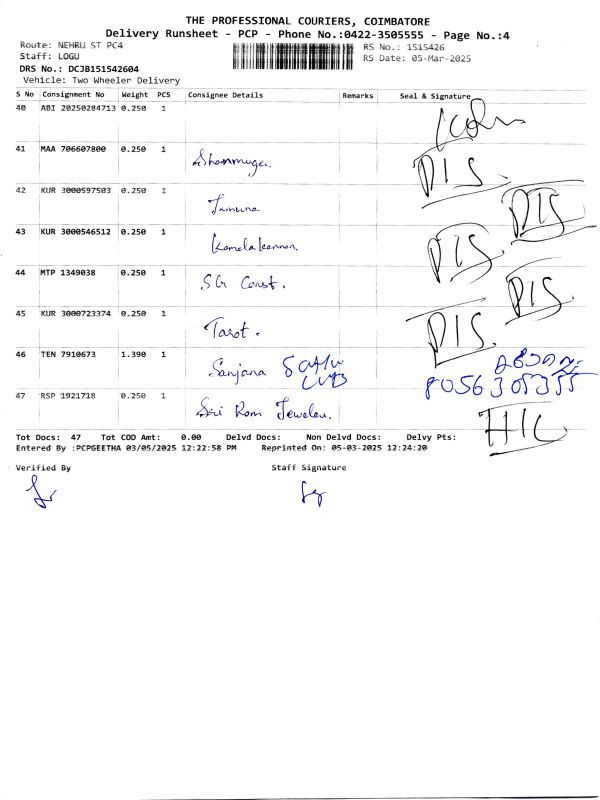 THE PROFESSIONAL COURIERS, COIMBATORE
Delivery Runsheet - PCP - Phone No.:0422-3505555 - Page No.:4
Route: NEHRU ST PC4 RS No.: 1515426
Staff: LOGU RS Date: 05-Mar-2025
DRS No.: DCJB151542604
Vehicle: Two Wheeler Delivery
S No Consignment No Weight PCS Consignee Details Remarks Seal & Signature
40 ABI 20250284713 0.250 1
41 MAA 706607800 0.250 1 Shanmuga. DIS.
42 KUR 3000597503 0.250 1 Jamuna DIS.
43 KUR 3000546512 0.250 1 Kamalakannan. DIS.
44 MTP 1349038 0.250 1 SG Const. DIS.
45 KUR 3000723374 0.250 1 Tarot. DIS.
46 TEN 7910673 1.390 1 Sanjana 8056305355
47 RSP 1921718 0.250 1 Sri Ram Jeweler. H/C
Tot Docs: 47 Tot COD Amt: 0.00 Delvd Docs: Non Delvd Docs: Delvy Pts:
Entered By :PCPGEETHA 03/05/2025 12:22:58 PM Reprinted On: 05-03-2025 12:24:20
Verified By Staff Signature